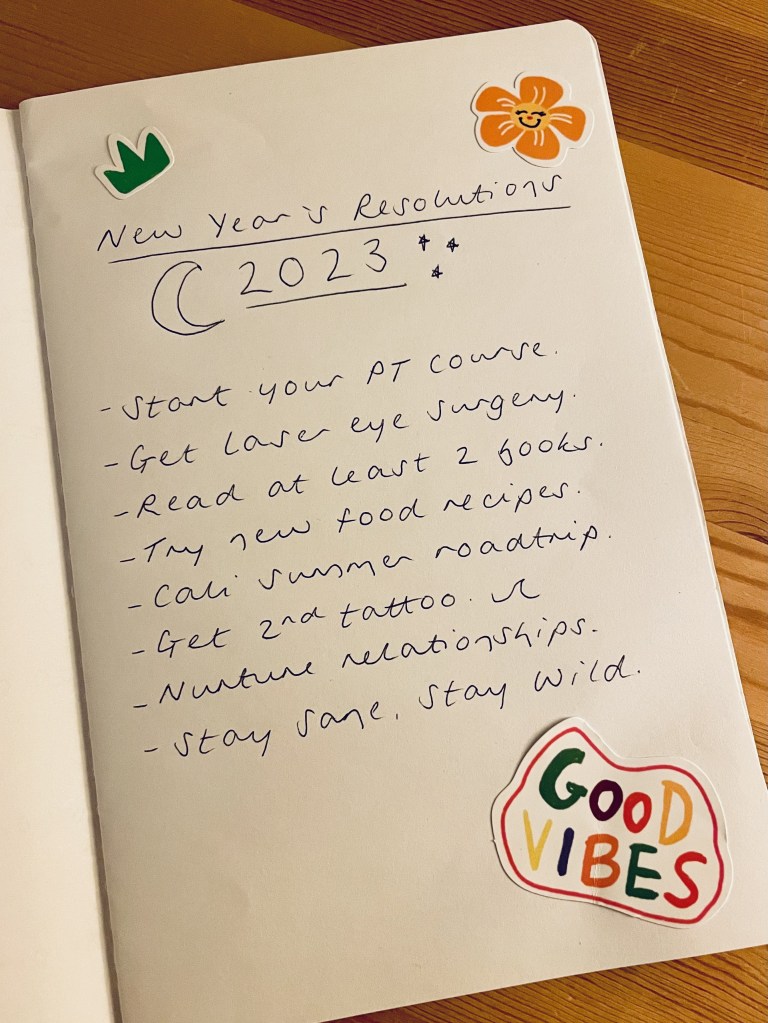 New Year's Resolutions
2023
- Start your PT course.
- Get laser eye surgery.
- Read at least 2 books.
- Try new food recipes.
- Cali summer roadtrip.
- Get 2nd tattoo.
- Nurture relationships.
- Stay sane, stay wild.
GOOD
VIBES